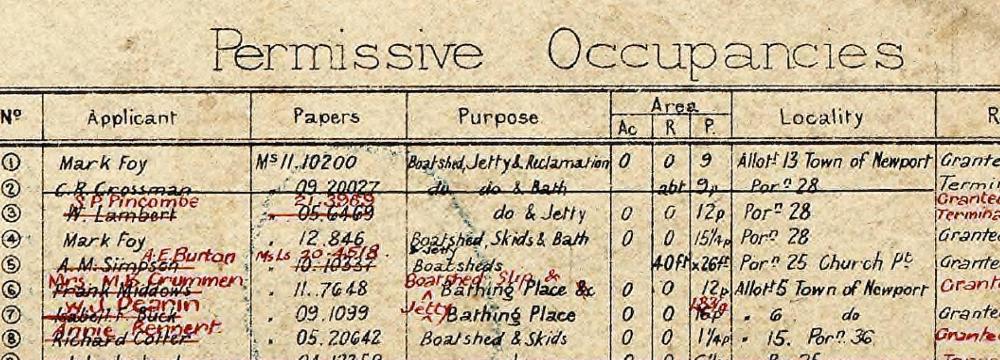 Permissive Occupancies
Nº Applicant Papers Purpose Area Locality
Ac R P.
① Mark Foy Ms 11.10200 Boatshed, Jetty & Reclamation 0 0 9 Allott 13 Town of Newport Grante
② C.R. Crossman " 09.20027 do do & Bath abt 9p Porⁿ 28 Termin
S.P. Pincombe 21.3969 Granted
③ W. Lambert " 05.6469 do & Jetty 0 0 12p Porⁿ 28 Termina
④ Mark Foy " 12.846 Boatshed, Skids & Bath 0 0 15¼p Porⁿ 28 Grante
A.E. Burton Ms Ls 20.4518 & Jetty
⑤ A.M. Simpson " 10.10337 Boatsheds 40ft x26ft Porⁿ 25 Church Pt Grante
Mrs. M.B. Crummen Boatshed Slip &
⑥ Frank Middows " 11.7648 Bathing Place &c 0 0 12p Allott 5 Town of Newport Grant
W.J. Deanin Jetty 18¾p
⑦ Buck " 09.1099 Bathing Place 0 0 16p " 6 do grante
Annie Rennert
⑧ Richard Cotter " 05.20642 Boatshed & Skids 0 0 1¼p " 15. Porⁿ 36 Grante